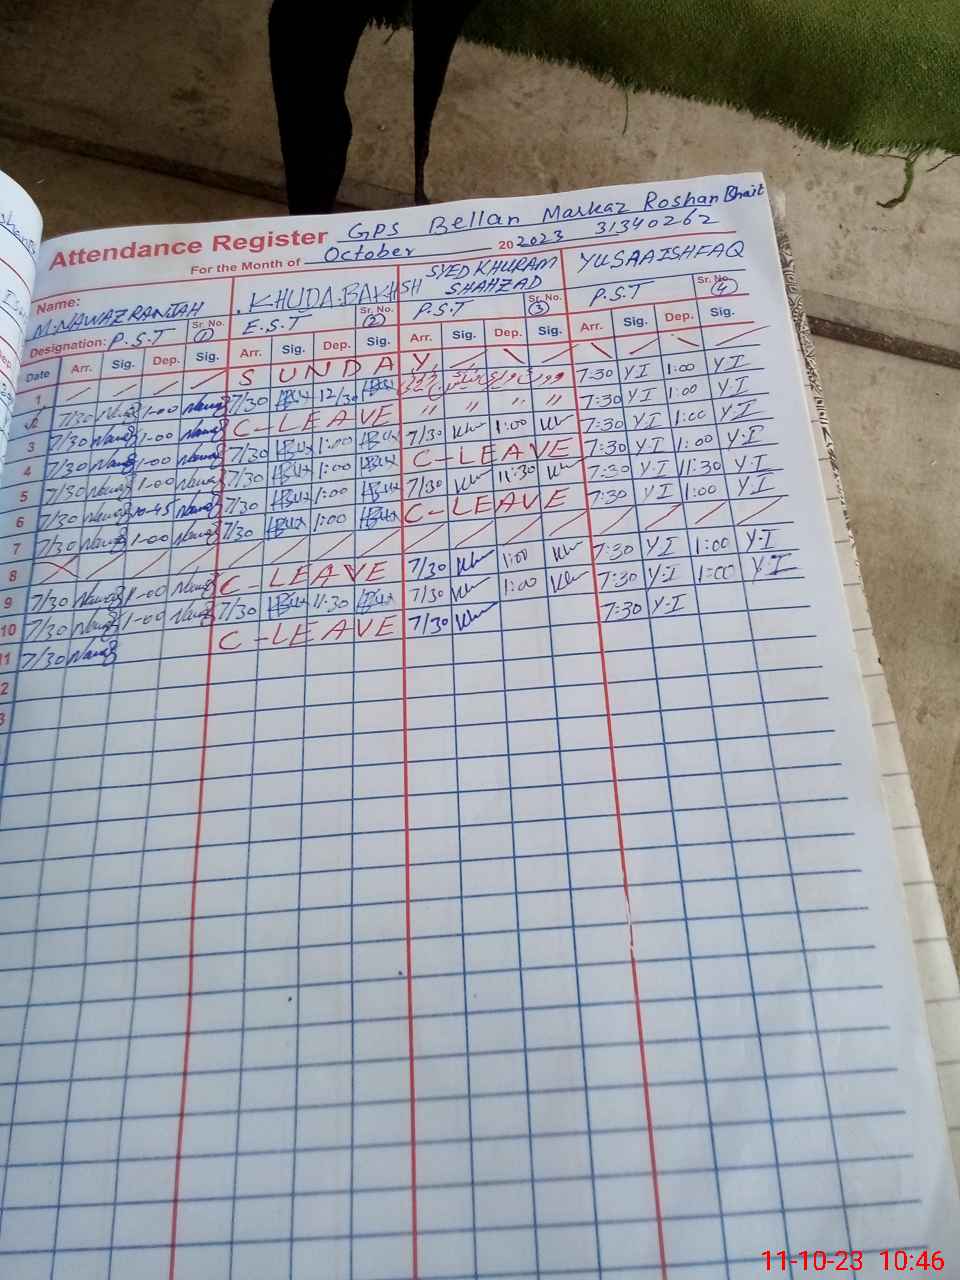 Attendance Register GPS Bellan Markaz Roshan Bhait
For the Month of October 20 2023 31340262
Name: M.NAWAZ RANJAH KHUDA.BAKHSH SYED KHURAM SHAHZAD YUSAA ISHFAQ
Designation: P.S.T Sr. No. 1 E.S.T Sr. No. 2 P.S.T Sr. No. 3 P.S.T Sr. No. 4
Date Arr. Sig. Dep. Sig. Arr. Sig. Dep. Sig. Arr. Sig. Dep. Sig. Arr. Sig. Dep. Sig.
1 SUNDAY
2 7/30 Nawaz 1-00 Nawaz 7/30 12/30 7:30 Y.I 1:00 Y.I
3 7/30 Nawaz 1-00 Nawaz C-LEAVE " " " " 7:30 Y.I 1:00 Y.I
4 7/30 Nawaz 1-00 Nawaz 7/30 1:00 7/30 1:00 7:30 Y.I 1:00 Y.I
5 7/30 Nawaz 1-00 Nawaz 7/30 1:00 C-LEAVE 7:30 Y.I 1:00 Y.I
6 7/30 Nawaz 10-45 Nawaz 7/30 1:00 7/30 11:30 7:30 Y.I 11:30 Y.I
7 7/30 Nawaz 1-00 Nawaz 7/30 1:00 C-LEAVE 7:30 Y.I 1:00 Y.I
8
9 7/30 Nawaz 1-00 Nawaz C-LEAVE 7/30 1:00 7:30 Y.I 1:00 Y.I
10 7/30 Nawaz 1-00 Nawaz 7/30 11:30 7/30 1:00 7:30 Y.I 1:00 Y.I
11 7/30 Nawaz C-LEAVE 7/30 7:30 Y.I
2
3
11-10-23 10:46